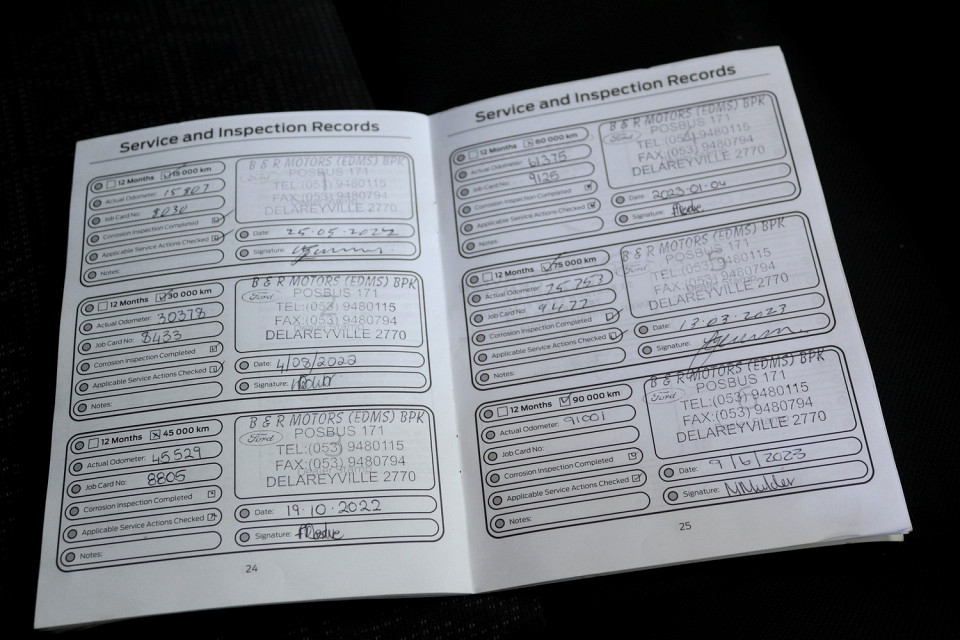 Service and Inspection Records
12 Months 15 000 km
Actual Odometer: 15807
Job Card No: 8030
Corrosion Inspection Completed
Applicable Service Actions Checked
Notes:
B & R MOTORS (EDMS) BPK
Ford
POSBUS 171
TEL:(053) 9480115
FAX:(053) 9480794
DELAREYVILLE 2770
Date: 25.05.2022
Signature:
12 Months 30 000 km
Actual Odometer: 30378
Job Card No: 8433
Corrosion Inspection Completed
Applicable Service Actions Checked
Notes:
B & R MOTORS (EDMS) BPK
Ford
POSBUS 171
TEL:(053) 9480115
FAX:(053) 9480794
DELAREYVILLE 2770
Date: 4/08/2022
Signature:
12 Months 45 000 km
Actual Odometer: 45529
Job Card No: 8805
Corrosion Inspection Completed
Applicable Service Actions Checked
Notes:
B & R MOTORS (EDMS) BPK
Ford
POSBUS 171
TEL:(053) 9480115
FAX:(053) 9480794
DELAREYVILLE 2770
Date: 19.10.2022
Signature:
24
Service and Inspection Records
12 Months 60 000 km
Actual Odometer: 61375
Job Card No: 9125
Corrosion Inspection Completed
Applicable Service Actions Checked
Notes:
B & R MOTORS (EDMS) BPK
Ford
POSBUS 171
TEL:(053) 9480115
FAX:(053) 9480794
DELAREYVILLE 2770
Date: 2023.01.04
Signature:
12 Months 75 000 km
Actual Odometer: 75753
Job Card No: 9477
Corrosion Inspection Completed
Applicable Service Actions Checked
Notes:
B & R MOTORS (EDMS) BPK
Ford
POSBUS 171
TEL:(053) 9480115
FAX:(053) 9480794
DELAREYVILLE 2770
Date: 13.03.2023
Signature:
12 Months 90 000 km
Actual Odometer: 91001
Job Card No:
Corrosion Inspection Completed
Applicable Service Actions Checked
Notes:
B & R MOTORS (EDMS) BPK
Ford
POSBUS 171
TEL:(053) 9480115
FAX:(053) 9480794
DELAREYVILLE 2770
Date: 9/6/2023
Signature: MMulder
25